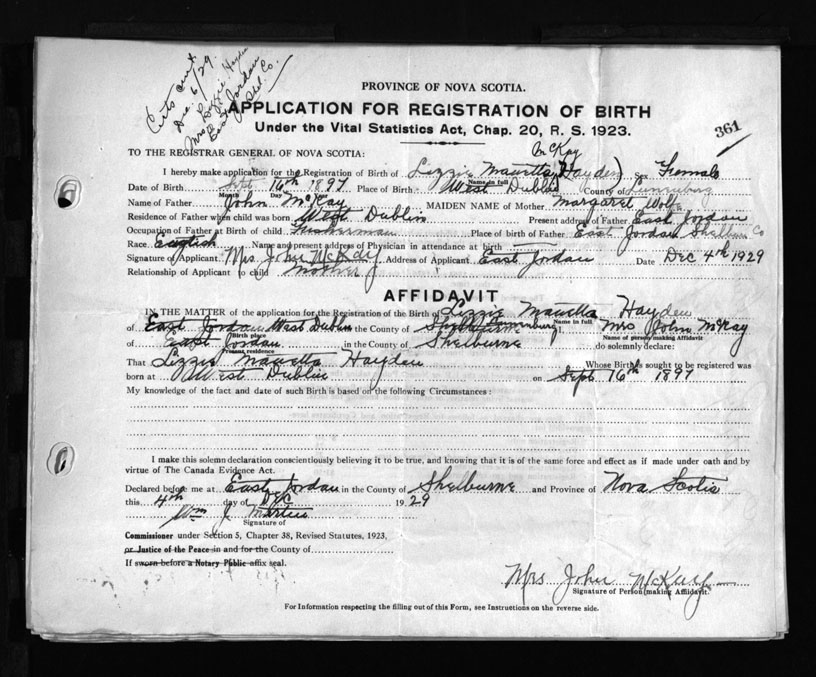 Certs out
Dec 6/29.
Mrs Lizzie Hayden
East Jordan
Shel. Co.
PROVINCE OF NOVA SCOTIA.
APPLICATION FOR REGISTRATION OF BIRTH
Under the Vital Statistics Act, Chap. 20, R. S. 1923.
361
McKay
TO THE REGISTRAR GENERAL OF NOVA SCOTIA:
I hereby make application for the Registration of Birth of Lizzie Mauetta (Hayden) Sex Female
Name in full
Date of Birth Sept 16th 1897 Place of Birth West Dublin County of Lunenburg
Month Day Year
Name of Father John McKay MAIDEN NAME of Mother Margaret Wolf
Residence of Father when child was born West Dublin Present address of Father East Jordan
Occupation of Father at Birth of child Fisherman Place of birth of Father East Jordan Shelburne Co
Race English Name and present address of Physician in attendance at birth
Signature of Applicant Mrs John McKay Address of Applicant East Jordan Date Dec 4th 1929
Relationship of Applicant to child Mother
AFFIDAVIT
IN THE MATTER of the application for the Registration of the Birth of Lizzie Mauetta Hayden
Name in full
of East Jordan West Dublin in the County of Lunenburg Mrs John McKay
Birth place Name of person making Affidavit
of East Jordan in the County of Shelburne do solemnly declare:
Present residence
That Lizzie Mauetta Hayden Whose Birth is sought to be registered was
born at West Dublin on Sept 16th 1897
My knowledge of the fact and date of such Birth is based on the following Circumstances:
I make this solemn declaration conscientiously believing it to be true, and knowing that it is of the same force and effect as if made under oath and by
virtue of The Canada Evidence Act.
Declared before me at East Jordan in the County of Shelburne and Province of Nova Scotia
this 4th day of Dec 1929
Wm J. Martin
Signature of
Commissioner under Section 5, Chapter 38, Revised Statutes, 1923,
or Justice of the Peace in and for the County of
If sworn before a Notary Public affix seal.
Mrs John McKay
Signature of Person making Affidavit.
For Information respecting the filling out of this Form, see Instructions on the reverse side.